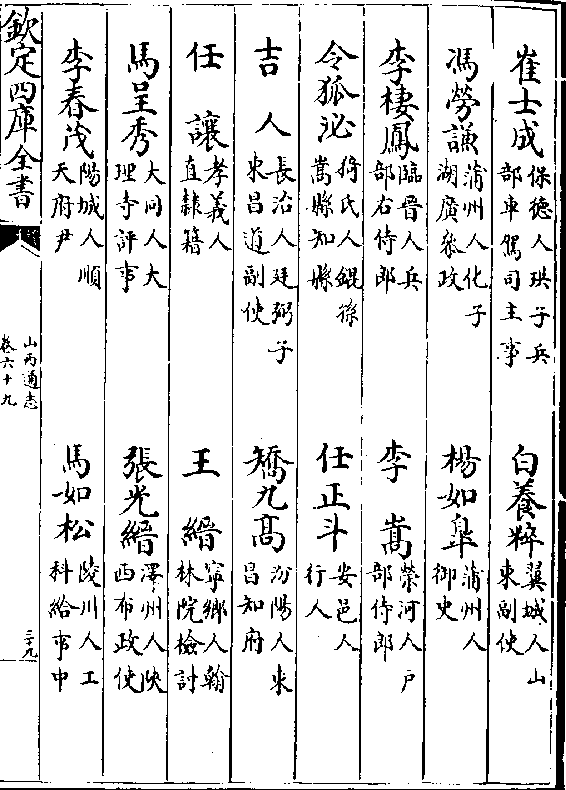 崔士成保德人珙子兵部車駕司主事
白養粹翼城人山東副使
馮勞謙蒲州人化子湖廣叅政
楊如臯蒲州人御史
李棲鳳臨晉人兵部右侍郎
李嵩榮河人户部侍郎
令狐泌猗氏人鯤孫嵩縣知縣
任正斗安邑人行人
吉人長治人廷弼子東昌道副使
矯九高汾陽人東昌知府
任讓孝義人直隸籍
王緝寧鄉人翰林院檢討
馬呈秀大同人大理寺評事
張光縉澤州人陜西布政使
李春茂陽城人順天府尹
馬如松陵川人工科給事中
欽定四庫全書
山西通志
卷六十九
三十九